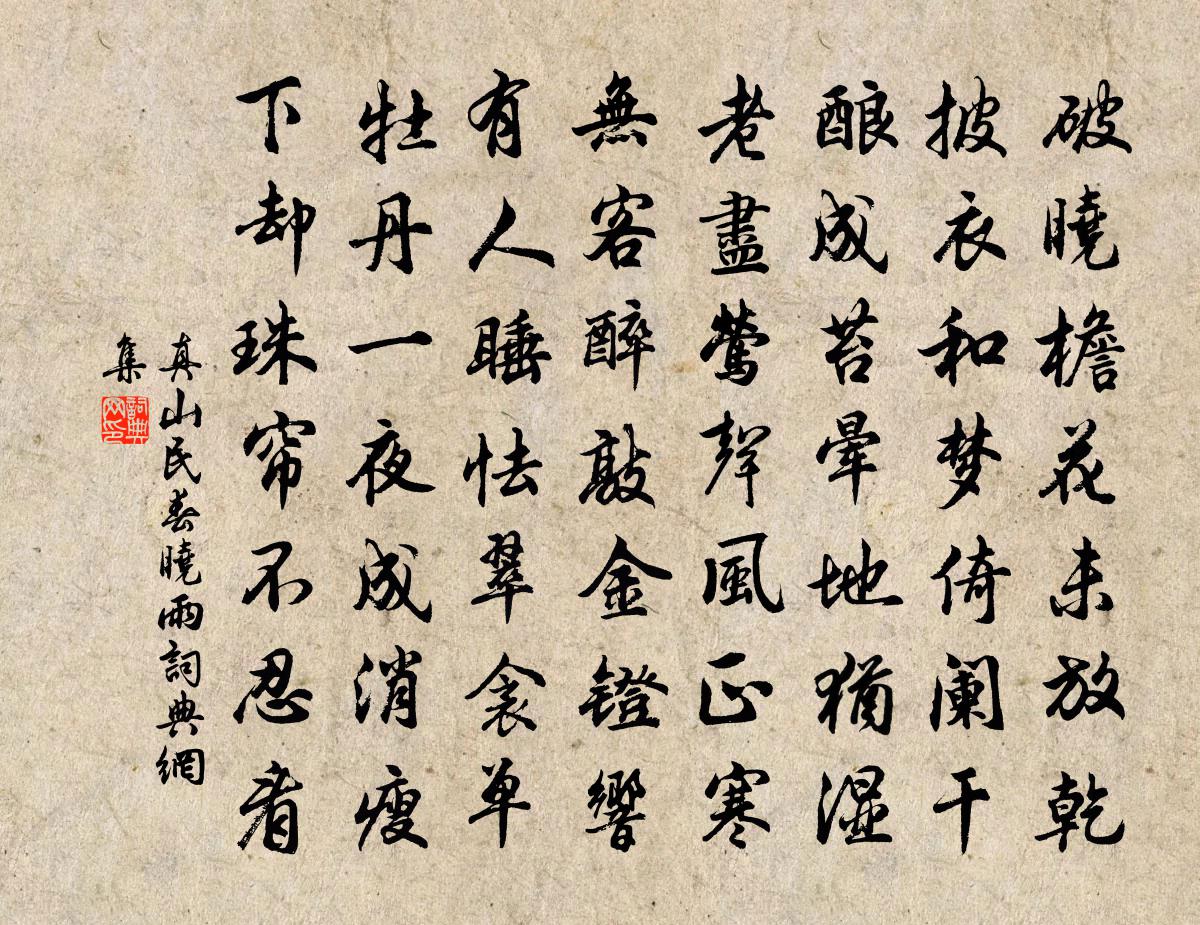 破曉檐花未放乾
披衣和梦倚阑干
酿成苔暈地猶湿
老盡鶯聲風正寒
無客醉敲金鐙響
有人睡怯翠衾单
牡丹一夜成消瘦
下却珠帘不忍看
真山民春曉雨詞典網
集
詞典
网印